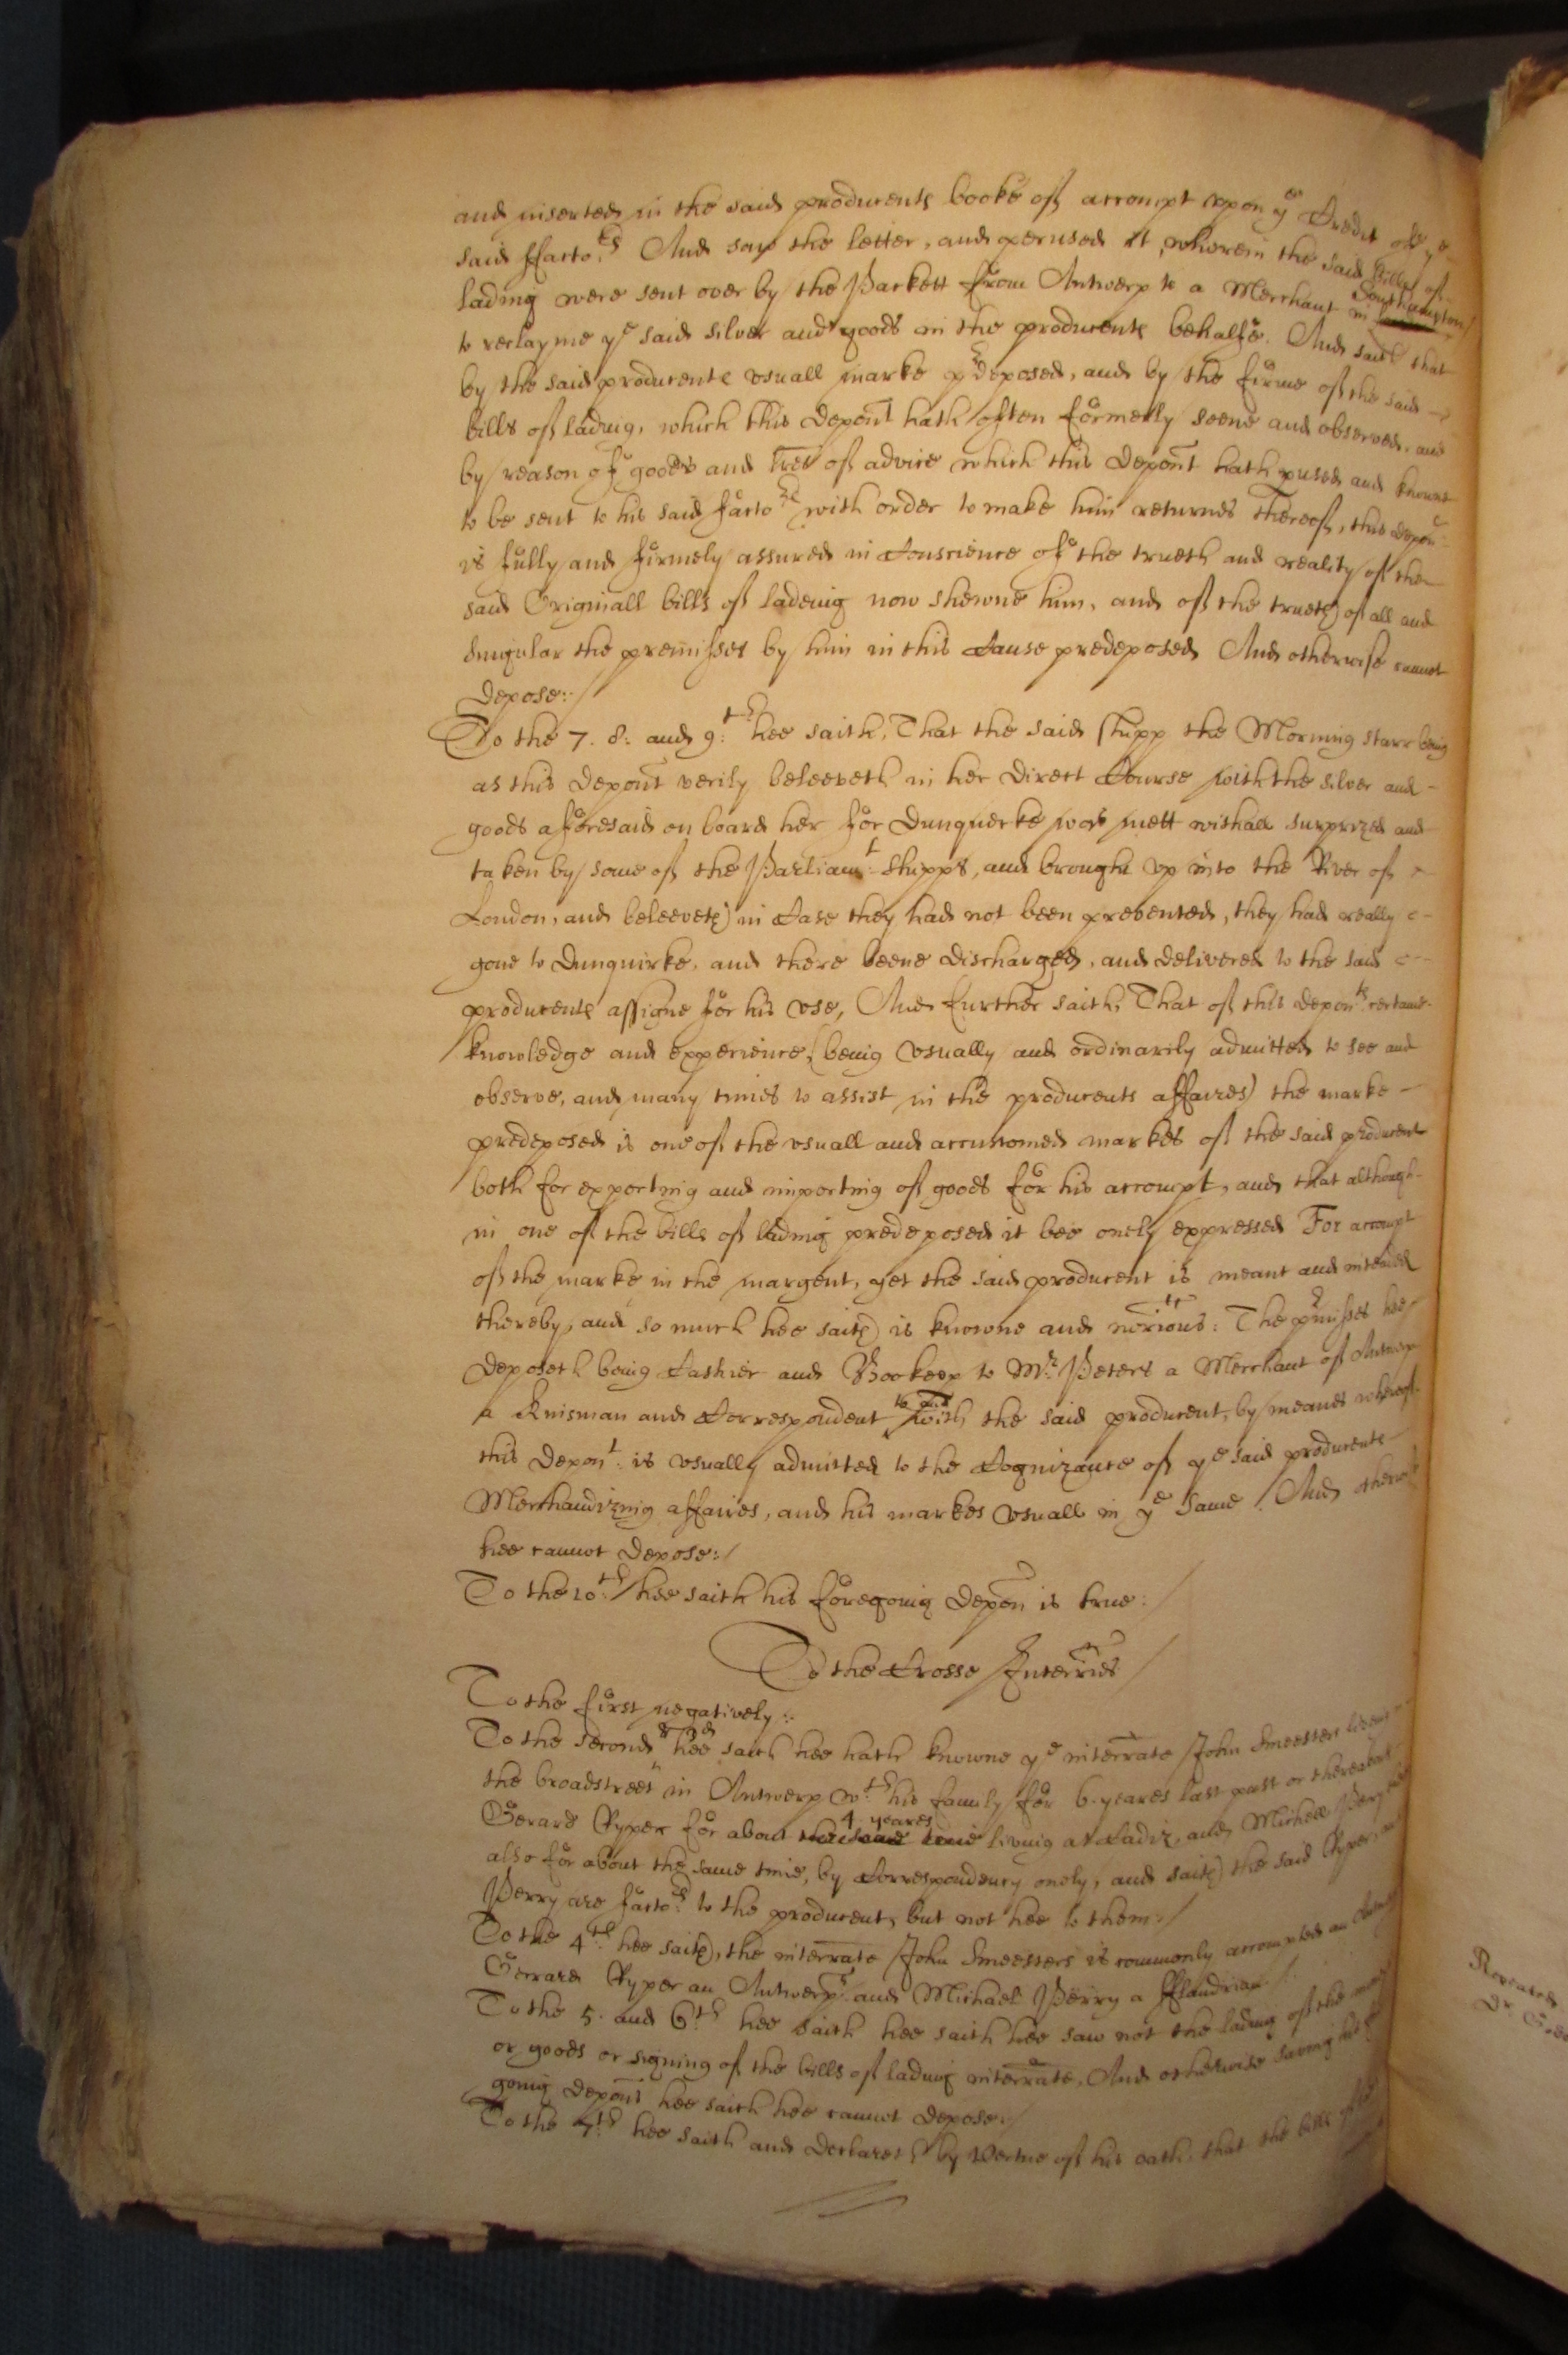 and inserted in the said producents booke of accompt upon ye Credit of ye
said ffactors And saw the letter, and perused it, wherein the said bills of
lading were sent over by the Packett from Antwerp to a Merchant in Southampton
to reclayme ye said silver and goods in the producents behalfe. And saith that
by the said producents usuall marke pr deposed, and by the firme of the said
bills of lading, which this depont hath often formerly seene and observed, and
by reason of goods and lres of advice which this depont hath pused and knowne
to be sent to his said factors with order to make him returnes thereof, this depont
is fully and firmely assured in Conscience of the trueth and reality of the
said Originall bills of ladeing now shewne him, and of the trueth of all and
singular the premisses by him in this Cause predeposed And otherwise cannot
depose:/
To the 7. 8. and 9:th hee saith, That the said shipp the Morning starr being
as this depont verily beleeveth in her direct Course with the silver and
goods aforesaid on board her for Dunquerke was mett withall surprized and
taken by some of the Parliamt: shipps, and brought up into the River of
London, and beleeveth in Case they had not been prevented, they had really
gone to Dunquirke, and there beene discharged, and delivered to the said
producents assigne for his use, And further saith, That of this deponts certaine
knowledge and experience, (being usually and ordinarily admitted to see and
observe, and many times to assist in the producents affaires) the marke
predeposed is one of the usuall and accustomed markes of the said producent
both for exporting and importing of goods for his accompt, and that although
in one of the bills of lading predeposed it bee onely expressed For accompt
of the marke in the margent, yet the said producent is meant and intended
thereby, and so much hee saith is knowne and notious: The pmisses hee
deposeth being Cashier and Bookeep to Mr: Peters a Merchant of Antwerp
a Kinsman and Correspondent to and with the said producent, by meanes whereof
this depont: is usually admitted to the Cognizance of ye said producents
Merchandizing affaires, and his markes usuall in ye same / And otherwise
hee cannot depose:/
To the 10:th hee saith his foregoing depon is true:/
To the Crosse Interries /
To the first negatively:
To the second & 3d hee saith hee hath knowne ye interrate John Smeesters liveing
the broadstreet in Antwerp wth his family for 6. yeares last past or thereabout
Gerard Ryper for about the same time 4. yeares living at Cadiz, and Michael Perry
also for about the same time, by Correspondency onely, and saith the said Ryper, and
Perry are factors to the producent, but not hee to them:/
To the 4th: hee saith, the interrate John Smeesters is commonly accounted an
Gerrard Ryper an Antwerpr and Michael Perry a fflandrian /
To the 5. and 6th hee saith hee saith hee saw not the lading of the
or goods or signing of the bills of lading interrate, And otherwise saving his
going depont hee saith hee cannot depose:/
To the 7th hee saith and declareth by Vertue of his oath, that the bills